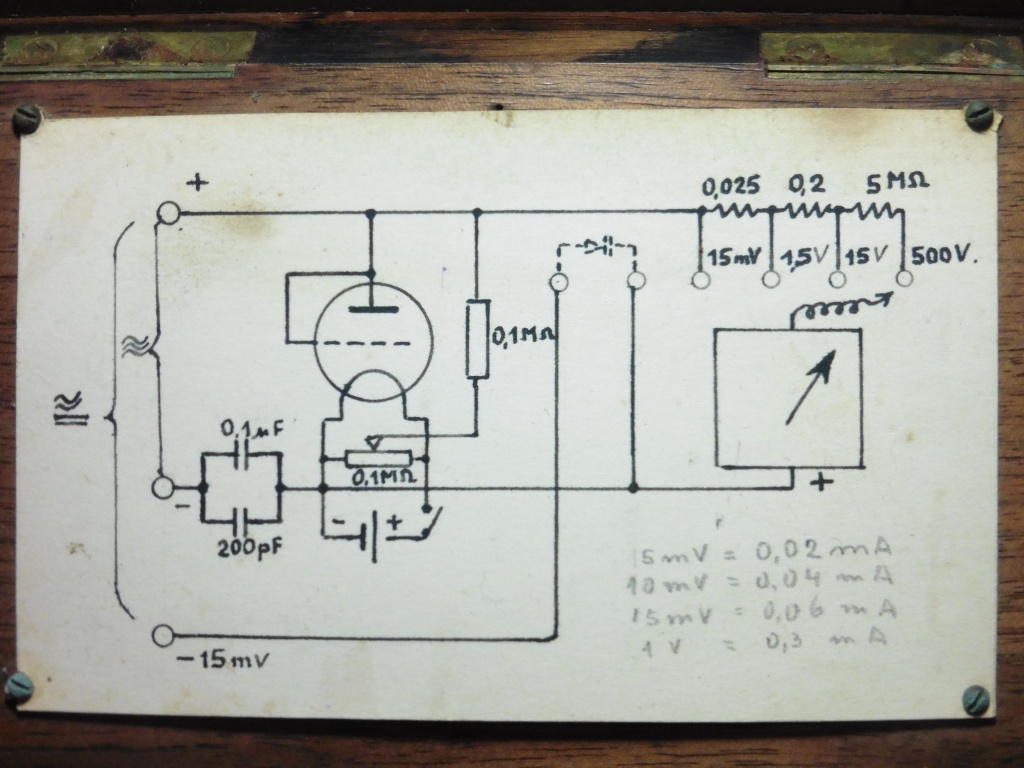 +
0,025 0,2 5 MΩ
15mV 1,5V 15V 500V.
0,1MΩ
≈
≈
0,1µF
0,1MΩ
-
- +
+
200pF
-15mV
5mV = 0,02 mA
10mV = 0,04 mA
15mV = 0,06 mA
1 V = 0,3 mA